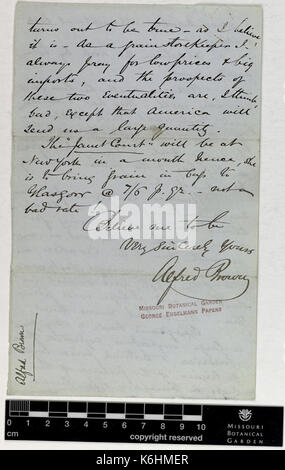 turns out to be true – as I believe
it is – As a grain Storekeeper I
always pray for low prices & big
imports, and the prospects of
these two eventualities are, I think,
bad, except that America will
send us a large quantity.
The "Janet Court" will be at
New York in a month hence, she
is to bring grain in bags to
Glasgow @ 7/6 p. qr. – not a
bad rate
Believe me to be
Very Sincerely Yours
Alfred Brown
MISSOURI BOTANICAL GARDEN
GEORGE ENGELMANN PAPERS
Alfred Brown
0 1 2 3 4 5 6 7 8 9 10
cm
copyright reserved
MISSOURI
BOTANICAL
GARDEN
alamy
Image ID: K6HMER
www.alamy.com